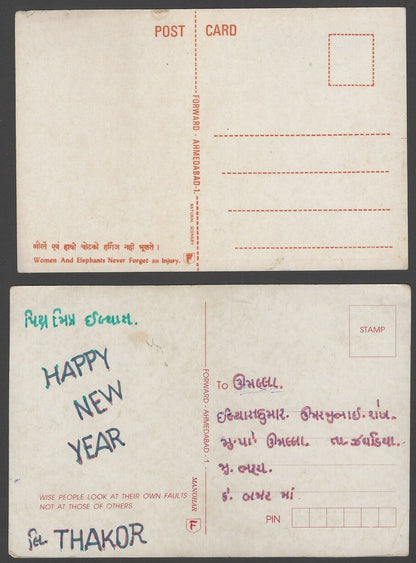 POST CARD
FORWARD - AHMEDABAD-1.
NATURAL SCENERY
औरतें एवं हाथी चोटको हर्गिज नहीं भूलते ।
Women And Elephants Never Forget an Injury.
પ્રિય મિત્ર ઈલ્યાસ.
HAPPY
NEW
YEAR
WISE PEOPLE LOOK AT THEIR OWN FAULTS
NOT AT THOSE OF OTHERS
લિ. THAKOR
FORWARD - AHMEDABAD - 1
MANOHAR
F
STAMP
To ઊમલ્લા.
ઈલ્યાસકુમાર. ઊમરભાઈ.
મુ. પો ઊમલ્લા. તા. ઝઘડિયા.
જી. ભરૂચ.
PIN